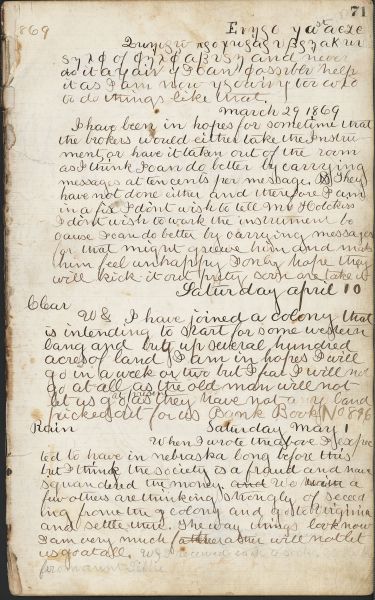 71
1869
and never
do it again if I can possible help
it as I am now growing too old
to do things like that.
March 29 1869
I have been in hopes for sometime that
the brokers would either take the Instru-
ment or have it taken out of the room
as I think I can do better by carrying
messages at ten cents per message. They
have not done either and therefore I am
in a fix I dont wish to tell Mr Hotchkiss
I dont wish to work the instrument be
cause I can do better by carrying messages
for that might grieve him and make
him feel unhappy I only hope they
will kick it out pretty soon or take it
Saturday april 10
Clear
I have joined a colony that
is intending to start for some western
land and buy up several hundred
acres of land I am in hopes I will
go in a week or two but I fear I will not
go at all as the old man will not
let us go at least as they have not any land
picked out for us Bank Book No 896
Rain Saturday May 1
When I wrote the above I expec
ted to have in nebraska long before this
but I think the society is a fraud and have
squandered the money and We with a
few others are thinking strongly of seced
ing frome the colony and go to Virginia
and settle there. The way things look now
I am very much father will not let
us go at all. We received
from aunt Tillie